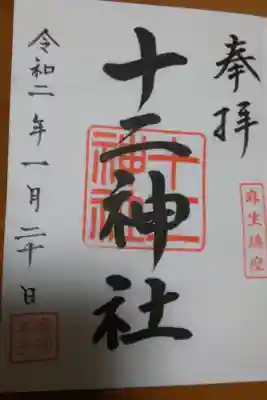 奉拝
麻生鎮座
十二神社
十二神社
令和二年一月二十日